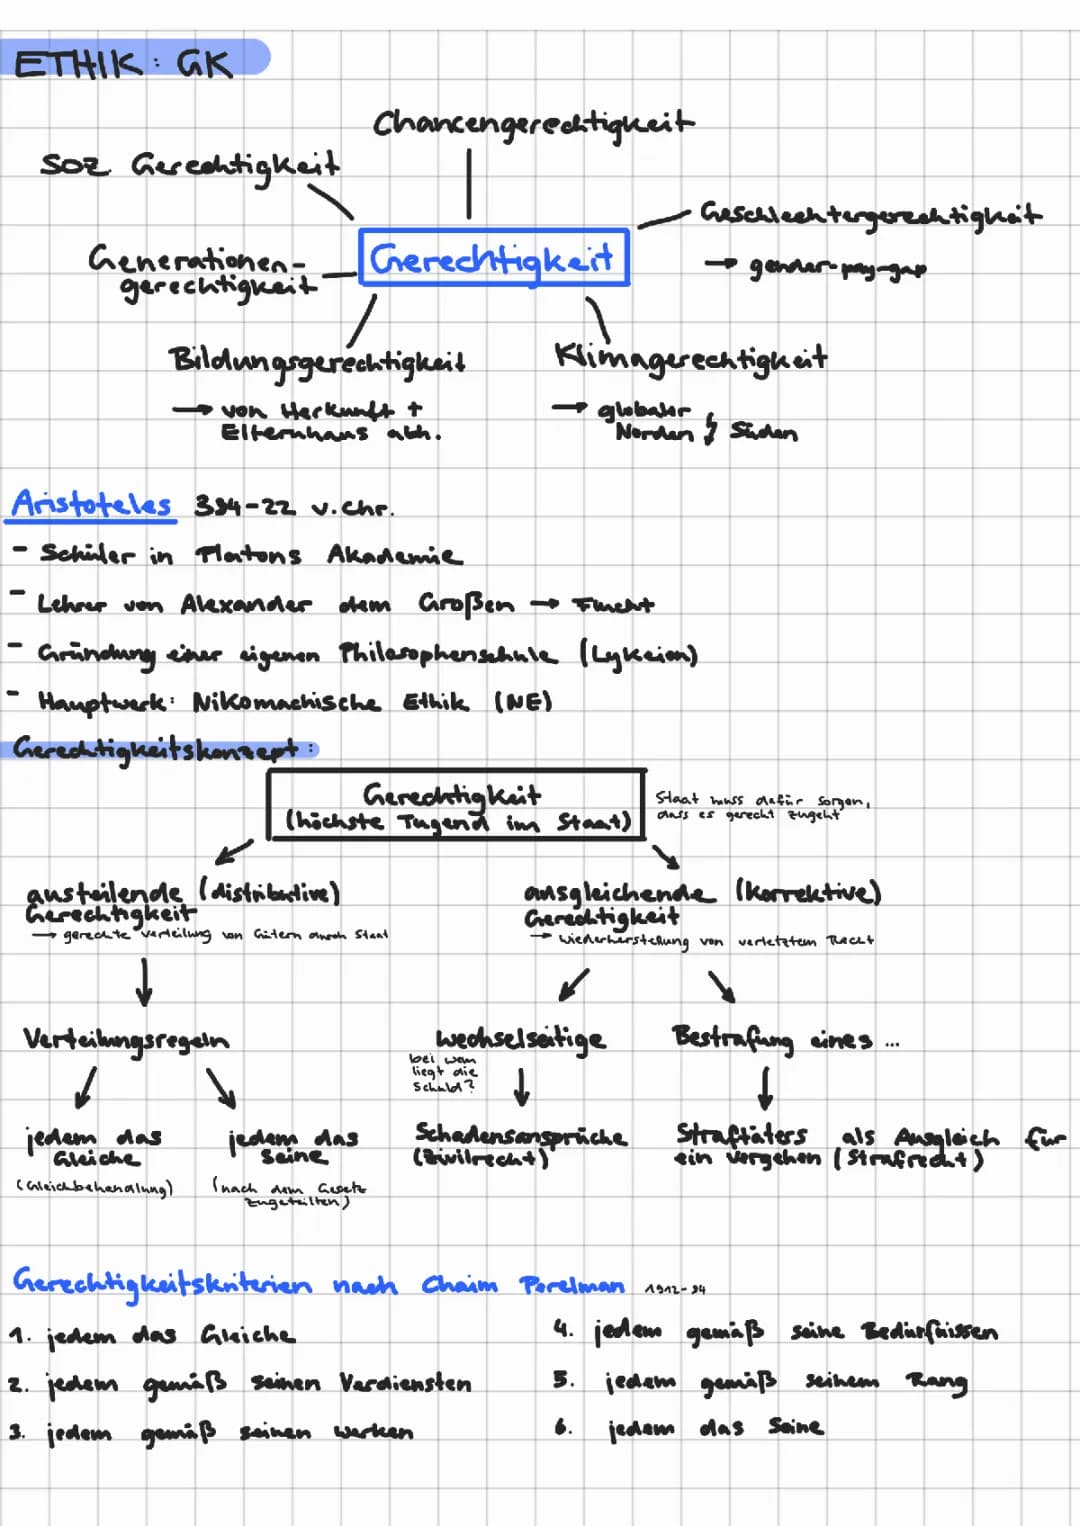 ETHIK: GK
Chancengerechtigkeit
Soz. Gerechtigkeit
Geschlechtergerechtigkeit
→ gender-pay-gap
Generationen-
gerechtigkeit
Gerechtigkeit
Bildungsgerechtigkeit
→ von Herkunft +
Elternhaus abh.
Klimagerechtigkeit
→ globaler
Norden ↯ Süden
Aristoteles 384-22 v.Chr.
- Schüler in Platons Akademie
- Lehrer von Alexander dem Großen → Flucht
- Gründung einer eigenen Philosophenschule (Lykeion)
- Hauptwerk: Nikomachische Ethik (NE)
Gerechtigkeitskonzept:
Gerechtigkeit
(höchste Tugend im Staat)
Staat muss dafür sorgen,
dass es gerecht zugeht
austeilende (distributive)
Gerechtigkeit
→ gerechte Verteilung von Gütern durch Staat
ausgleichende (Korrektive)
Gerechtigkeit
→ Wiederherstellung von verletztem Recht
Verteilungsregeln
wechselseitige
bei wem
liegt die
Schuld?
Bestrafung eines ...
jedem das
Gleiche
(Gleichbehandlung)
jedem das
Seine
(nach dem Gesetz
zugeteilten)
Schadensansprüche
(Zivilrecht)
Straftäters als Ausgleich für
ein Vergehen (Strafrecht)
Gerechtigkeitskriterien nach Chaim Perelman 1912-84
1. jedem das Gleiche
2. jedem gemäß seinen Verdiensten
3. jedem gemäß seinen werken
4. jedem gemäß seine Bedürfnissen
5. jedem gemäß seinem Rang
6. jedem das Seine